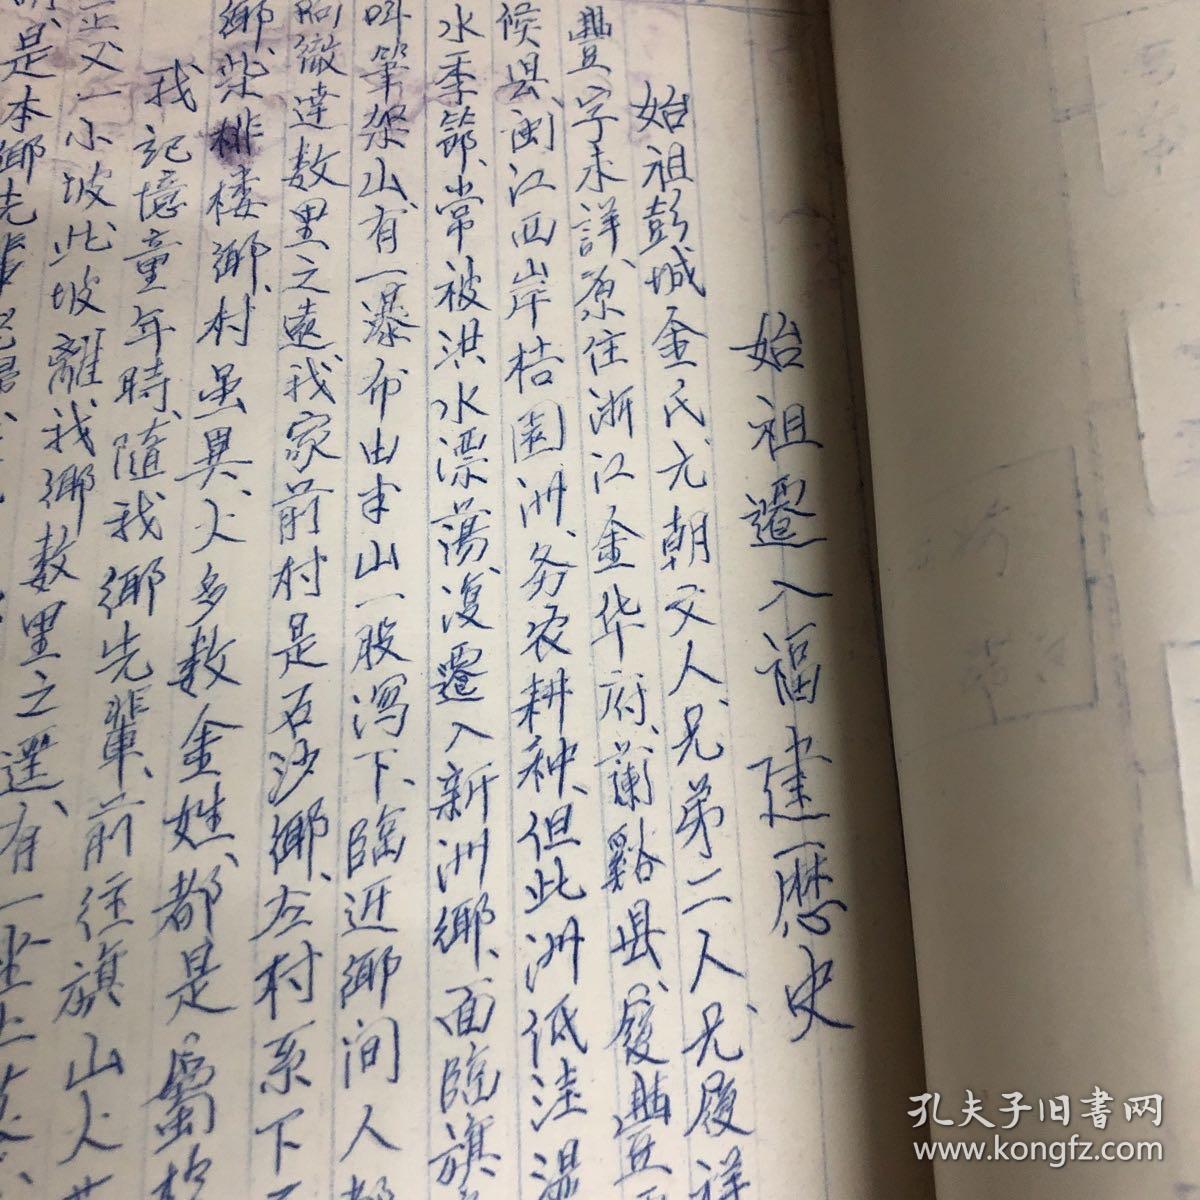 始祖遷入福建歷史
始祖彭城金氏元朝交人兄弟二人兄履祥
豐字未詳原住浙江金华府蘭谿县履豐
候县闽江西岸桔園洲务农耕种但此洲低洼
水季節常被洪水漂荡復遷入新洲鄉面臨旗
叫筆架山有一瀑布由半山一股瀉下臨近鄉间人
响徹達数里之遠我家前村是石沙鄉左村系下
鄉柴排楼鄉村虽異大多数金姓都是屬
我記憶童年時隨我鄉先輩前往旗山大
一小坡此坡離我鄉数里之遥有一
是本鄉先輩
孔夫子旧書网
www.kongfz.com